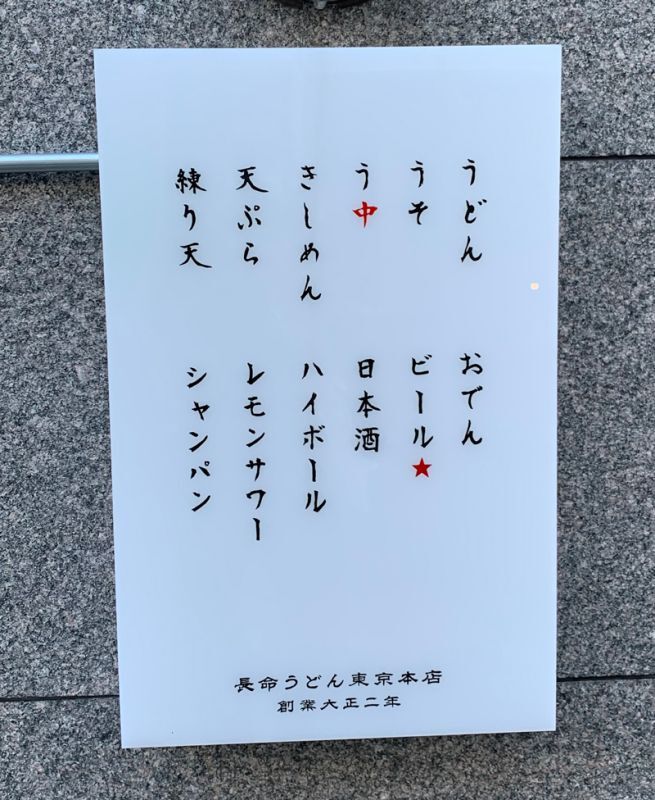 うどん
うそ
う中
きしめん
天ぷら
練り天
おでん
ビール★
日本酒
ハイボール
レモンサワー
シャンパン
長命うどん東京本店
創業大正二年